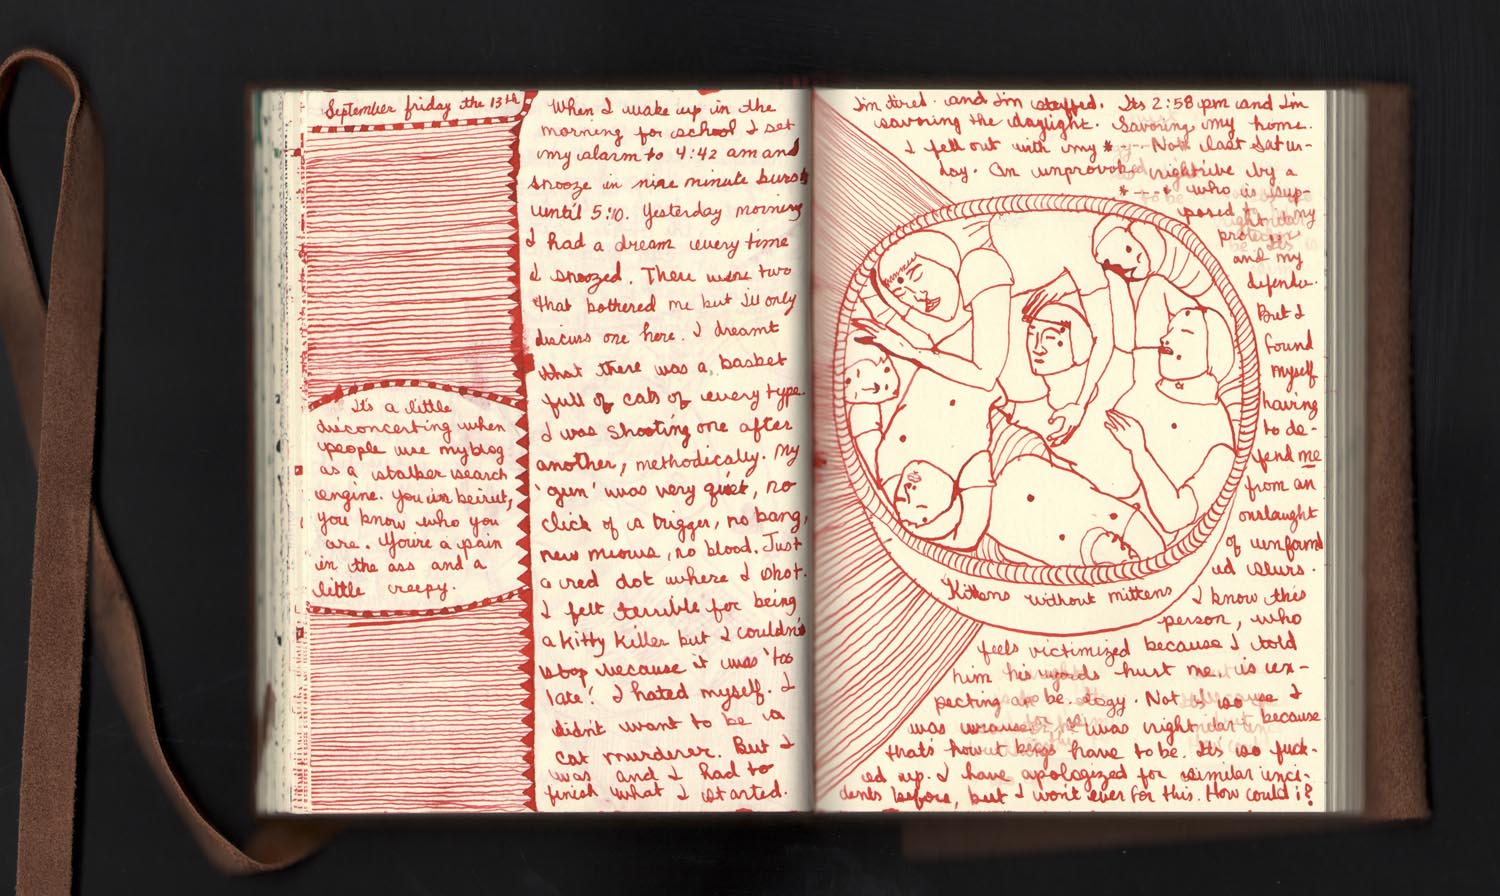 September friday the 13th
It's a little
disconcerting when
people use my blog
as a stalker search
engine. You in beirut,
you know who you
are. You're a pain
in the ass and a
little creepy.
When I wake up in the
morning for school I set
my alarm to 4:42 am and
snooze in nine minute bursts
until 5:10. Yesterday morning
I had a dream every time
I snoozed. There were two
that bothered me but I'll only
discuss one here. I dreamt
that there was a basket
full of cats of every type.
I was shooting one after
another, methodically. My
'gun' was very quiet, no
click of a trigger, no bang,
new meows, no blood. Just
a red dot where I shot.
I felt terrible for being
a kitty killer but I couldn't
stop because it was 'too
late'. I hated myself. I
didn't want to be a
cat murderer. But I
was and I had to
finish what I started.
I'm tired. and I'm stuffed. Its 2:58 pm and I'm
savoring the daylight. Savoring my home.
I fell out with my *--- Not last Satur-
day. An unprovoked by a
*---* who is sup-
posed to my
protector
and my
defender.
But I
found
myself
having
to de-
fend me
from an
onslaught
of unform
ed slurs.
Kittens without mittens
I know this
person, who
feels victimized because I told
him his words hurt me, is ex-
pecting an ology. Not so I
was was right because
that's how have to be. It's so fuck-
ed up. I have apologized for similar inci-
dents before, but I won't ever for this. How could i?